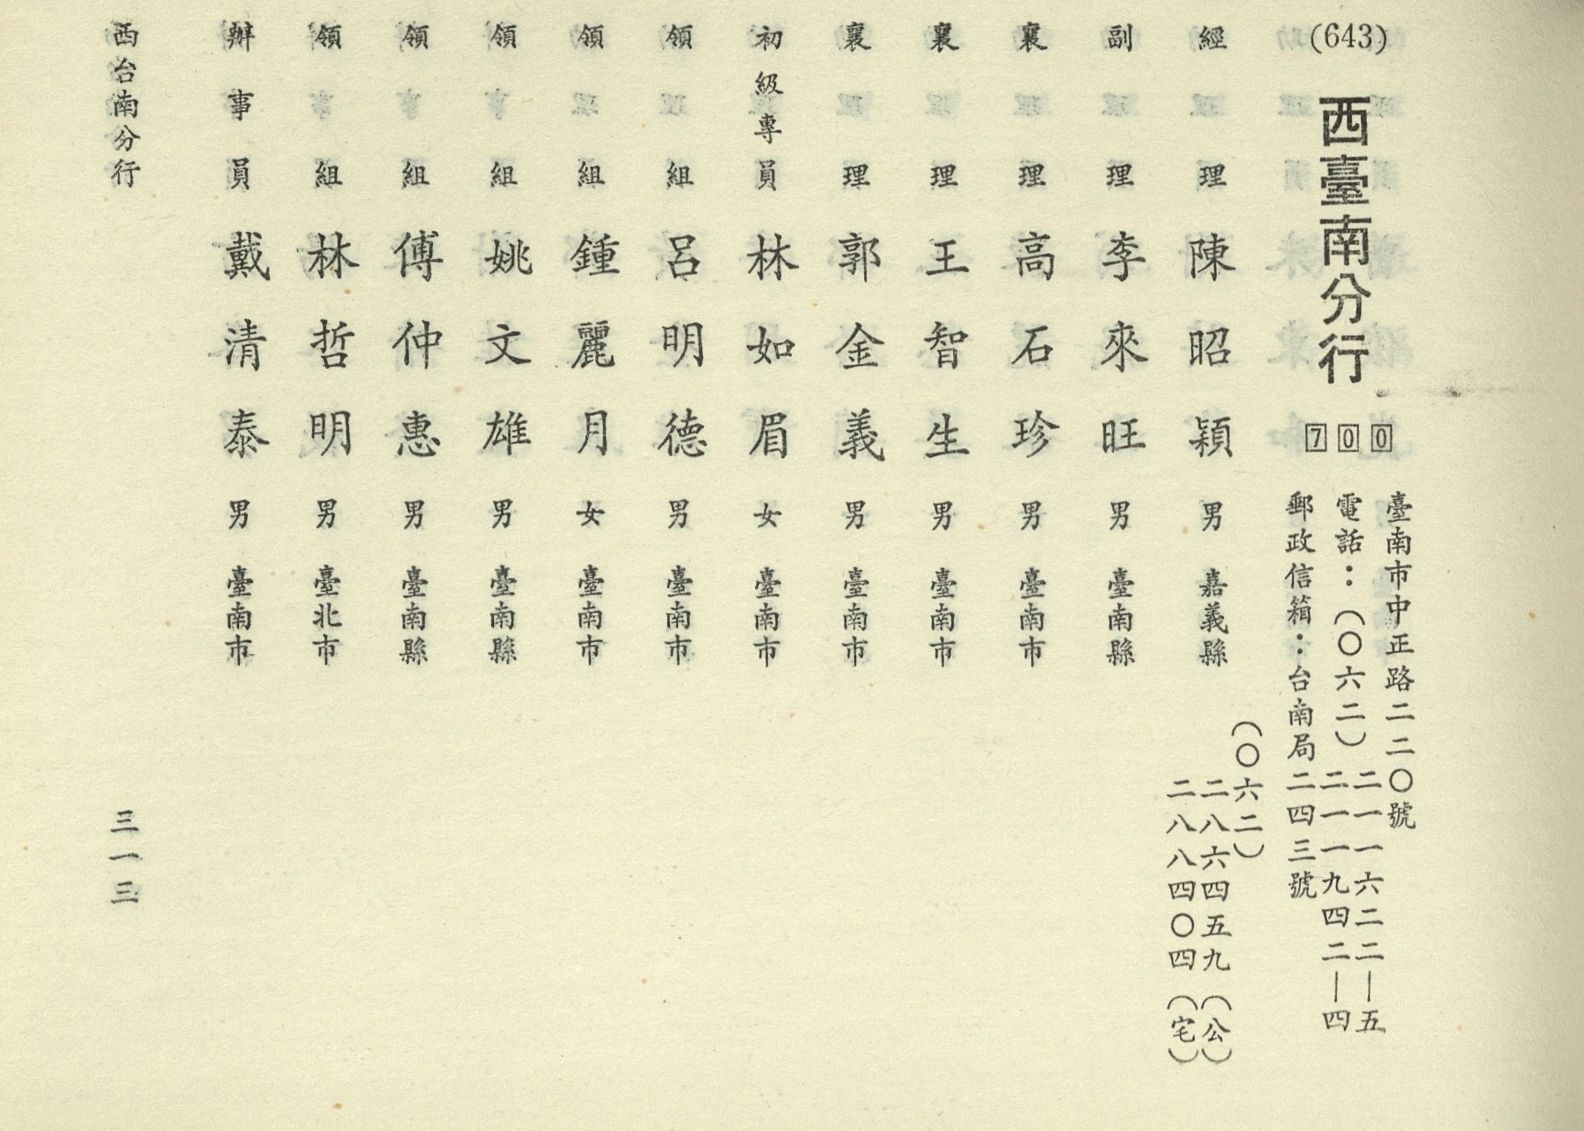 (643)
西臺南分行
700
臺南市中正路二二〇號
電話：（〇六二）二一一六二二—五
二一一九四二—四
郵政信箱：台南局二四三號
經理 陳昭穎 男 嘉義縣
（〇六二）
二八六四五九（公）
二八八四〇四（宅）
副理 李來旺 男 臺南縣
襄理 高石珍 男 臺南市
襄理 王智生 男 臺南市
襄理 郭金義 男 臺南市
初級專員 林如眉 女 臺南市
領組 呂明德 男 臺南市
領組 鍾麗月 女 臺南市
領組 姚文雄 男 臺南縣
領組 傅仲惠 男 臺南縣
領組 林哲明 男 臺北市
辦事員 戴清泰 男 臺南市
西台南分行
三一三